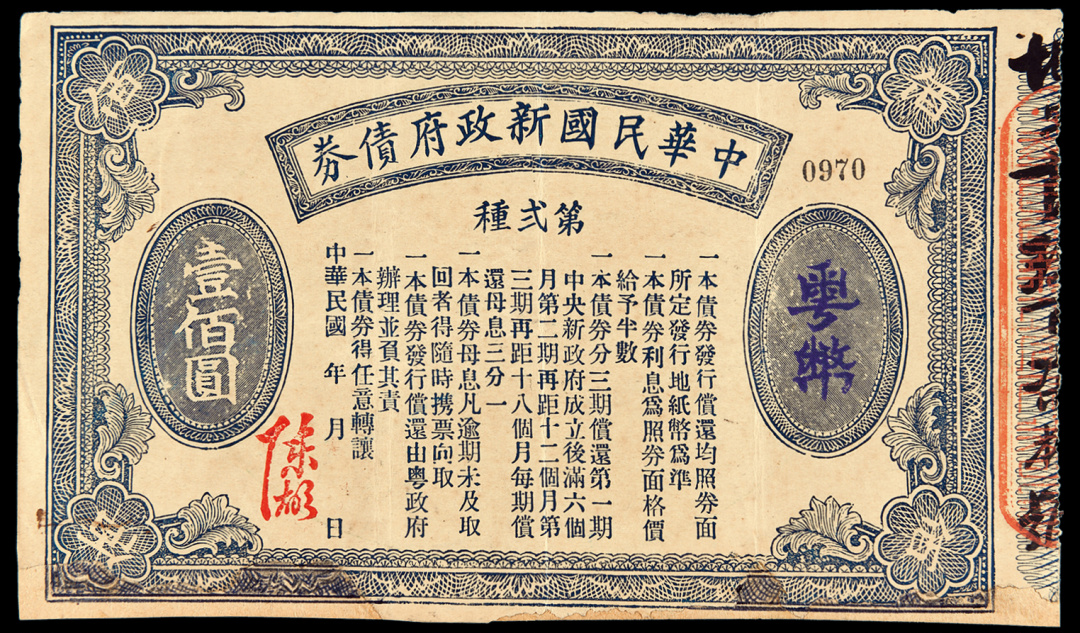 中華民國新政府債券
0970
第弍種
粵幣
一本債券發行償還均照券面
所定發行地紙幣爲準
一本債券利息爲照券面格價
給予半數
一本債券分三期償還第一期
中央新政府成立後滿六個
月第二期再距十二個月第
三期再距十八個月每期償
還母息三分一
一本債券母息凡逾期未及取
回者得隨時携票向取
一本債券發行償還由粵政府
辦理並負其責
一本債券得任意轉讓
中華民國 年 月 日
壹佰圓